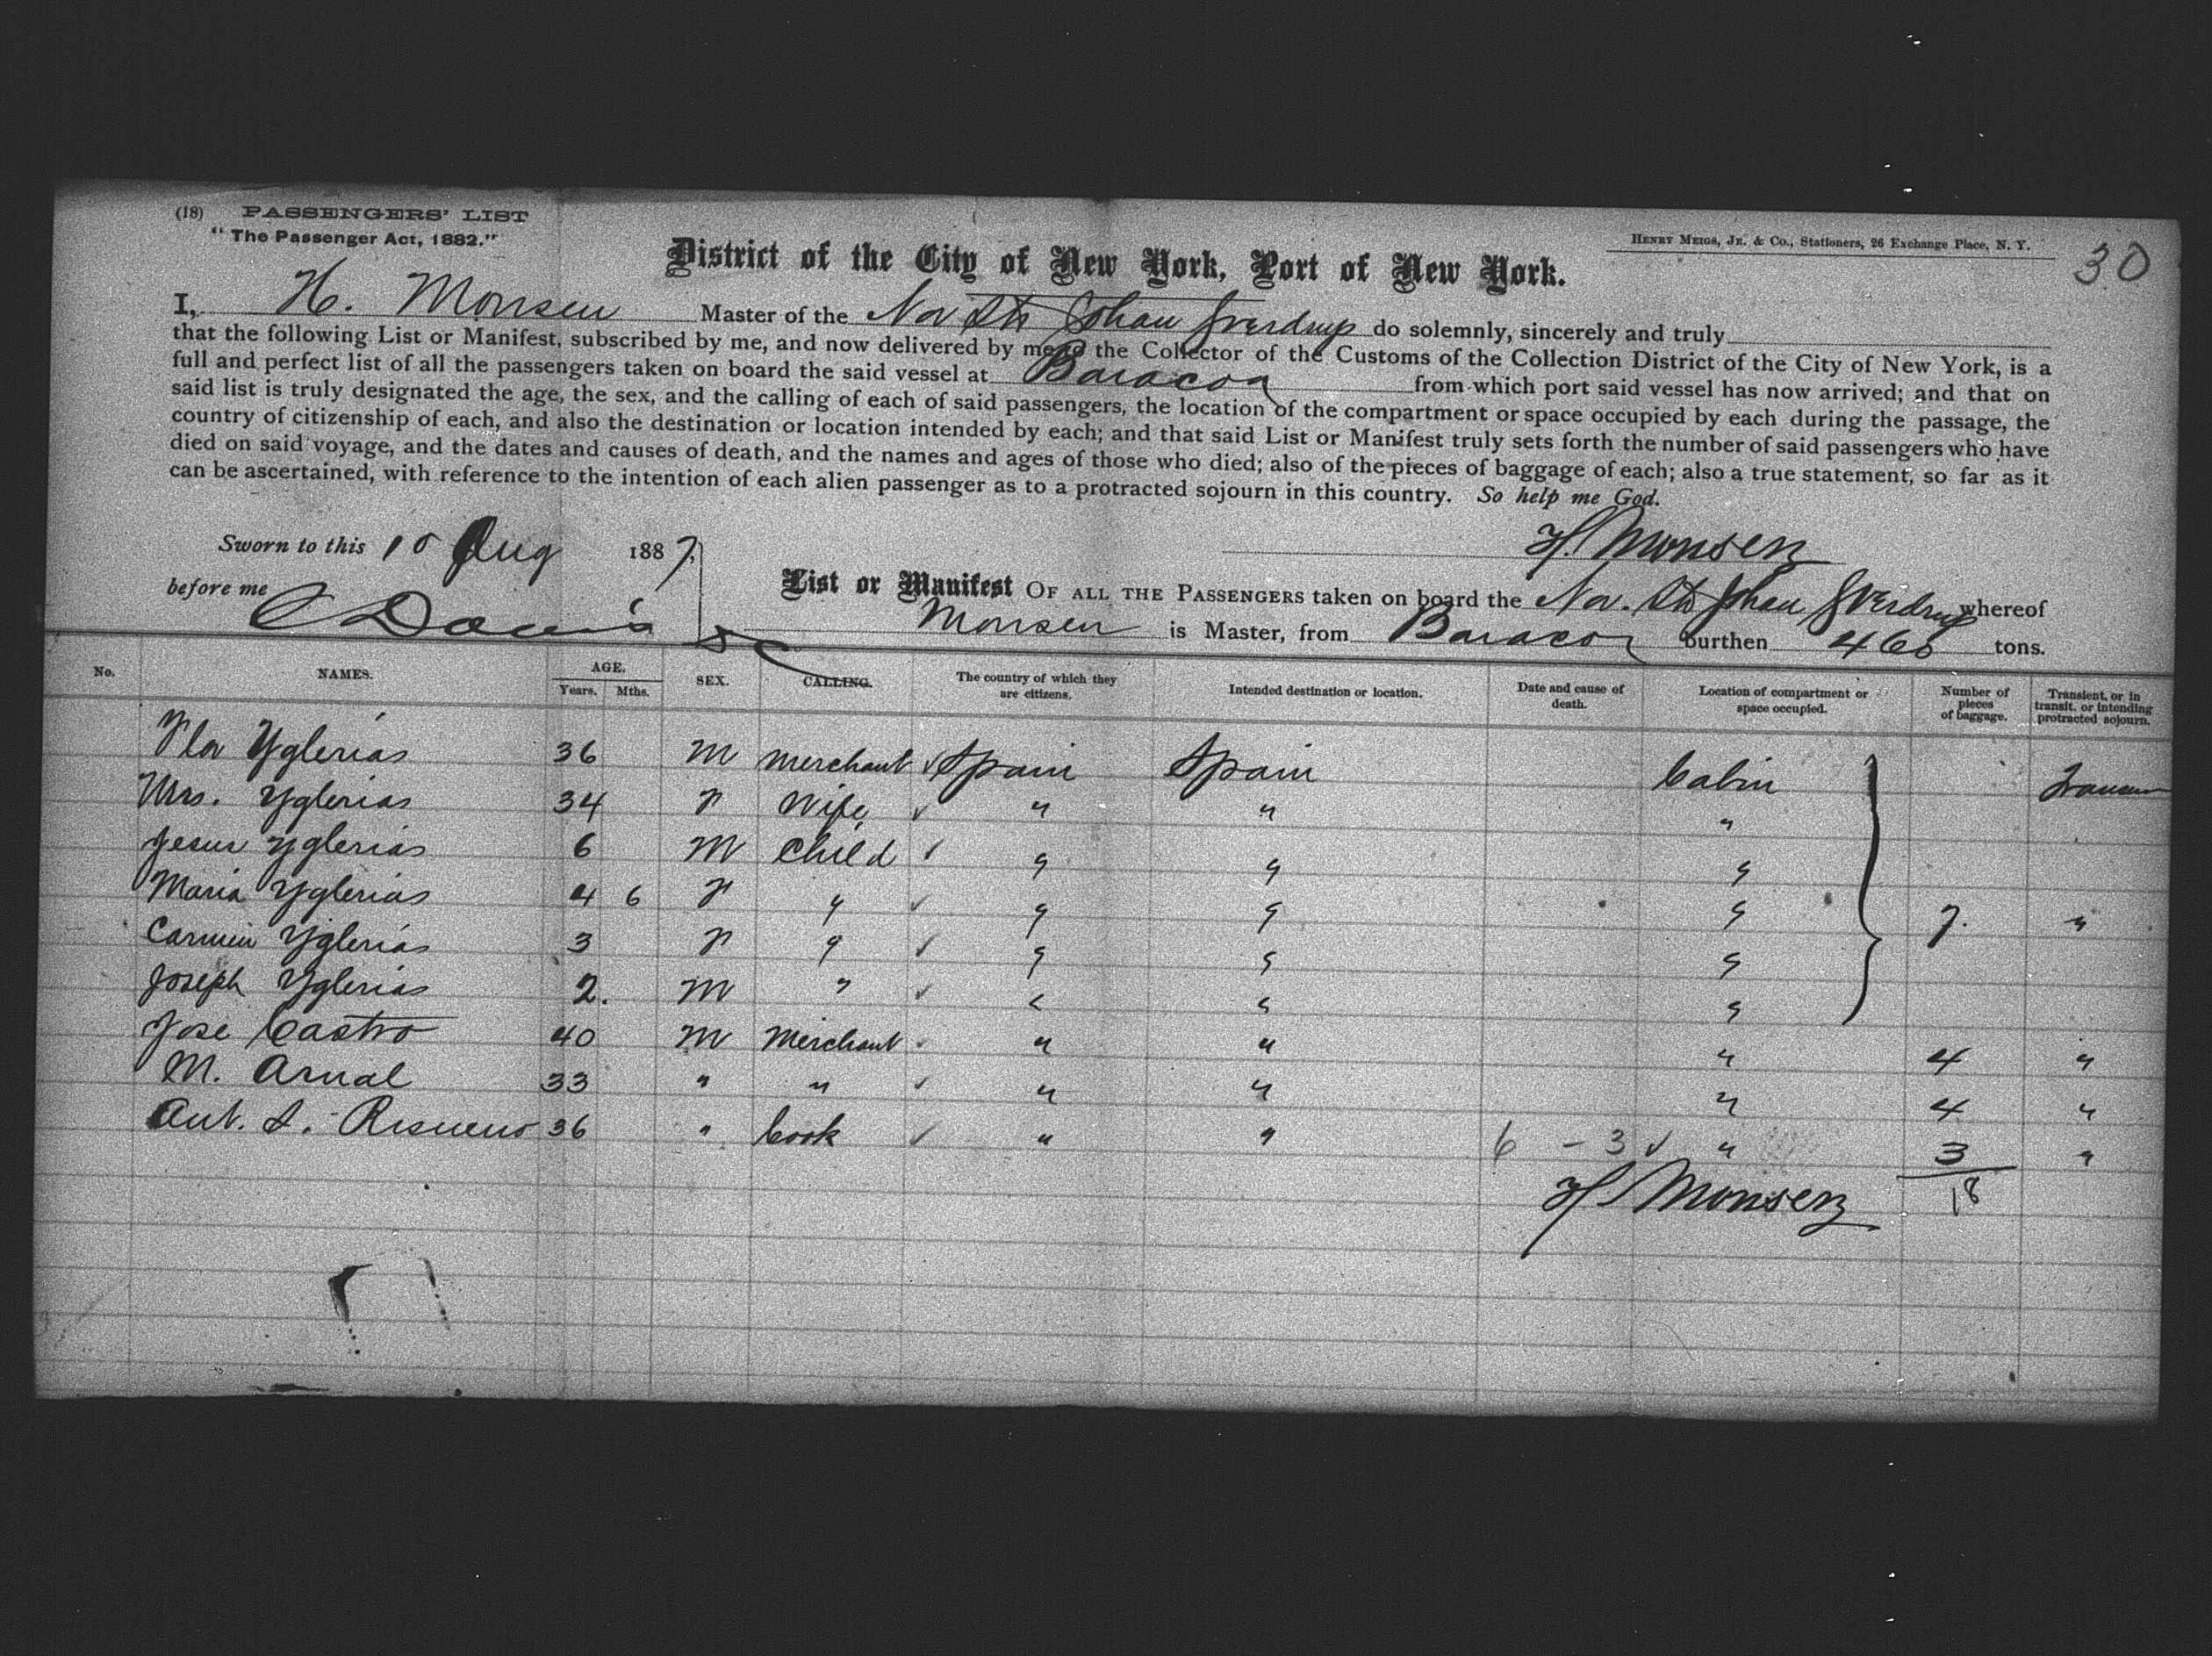 (18) PASSENGERS' LIST
"The Passenger Act, 1882."
HENRY MEIGS, JR. & CO., Stationers, 26 Exchange Place, N. Y.
30
District of the City of New York, Port of New York.
I, H. Monsen Master of the Nor Str Johan Sverdrup do solemnly, sincerely and truly
that the following List or Manifest, subscribed by me, and now delivered by me to the Collector of the Customs of the Collection District of the City of New York, is a
full and perfect list of all the passengers taken on board the said vessel at Baracoa from which port said vessel has now arrived; and that on
said list is truly designated the age, the sex, and the calling of each of said passengers, the location of the compartment or space occupied by each during the passage, the
country of citizenship of each, and also the destination or location intended by each; and that said List or Manifest truly sets forth the number of said passengers who have
died on said voyage, and the dates and causes of death, and the names and ages of those who died; also of the pieces of baggage of each; also a true statement, so far as it
can be ascertained, with reference to the intention of each alien passenger as to a protracted sojourn in this country. So help me God.
Sworn to this 10 Aug 1887.
H. Monsen
before me Davis
List or Manifest OF ALL THE PASSENGERS taken on board the Nor. Str Johan Sverdrup whereof
Monsen is Master, from Baracoa burthen 460 tons.
No. NAMES. AGE. Years. Mths. SEX. CALLING. The country of which they are citizens. Intended destination or location. Date and cause of death. Location of compartment or space occupied. Number of pieces of baggage. Transient, or in transit, or intending protracted sojourn.
Yglerias 36 M Merchant ✓ Spain Spain Cabin
Mrs. Yglerias 34 F Wife ✓ " " "
Jesus Yglerias 6 M Child ✓ " " "
Maria Yglerias 4 6 F " ✓ " " " 7. "
Carmen Yglerias 3 F " ✓ " " "
Joseph Yglerias 2. M " ✓ " " "
Jose Castro 40 M Merchant ✓ " " " 4 "
M. Arnal 33 " " ✓ " " " 4 "
Ant. S. Risueno 36 " Cook ✓ " " 6 - 3 ✓ " 3 "
H. Monsen 18